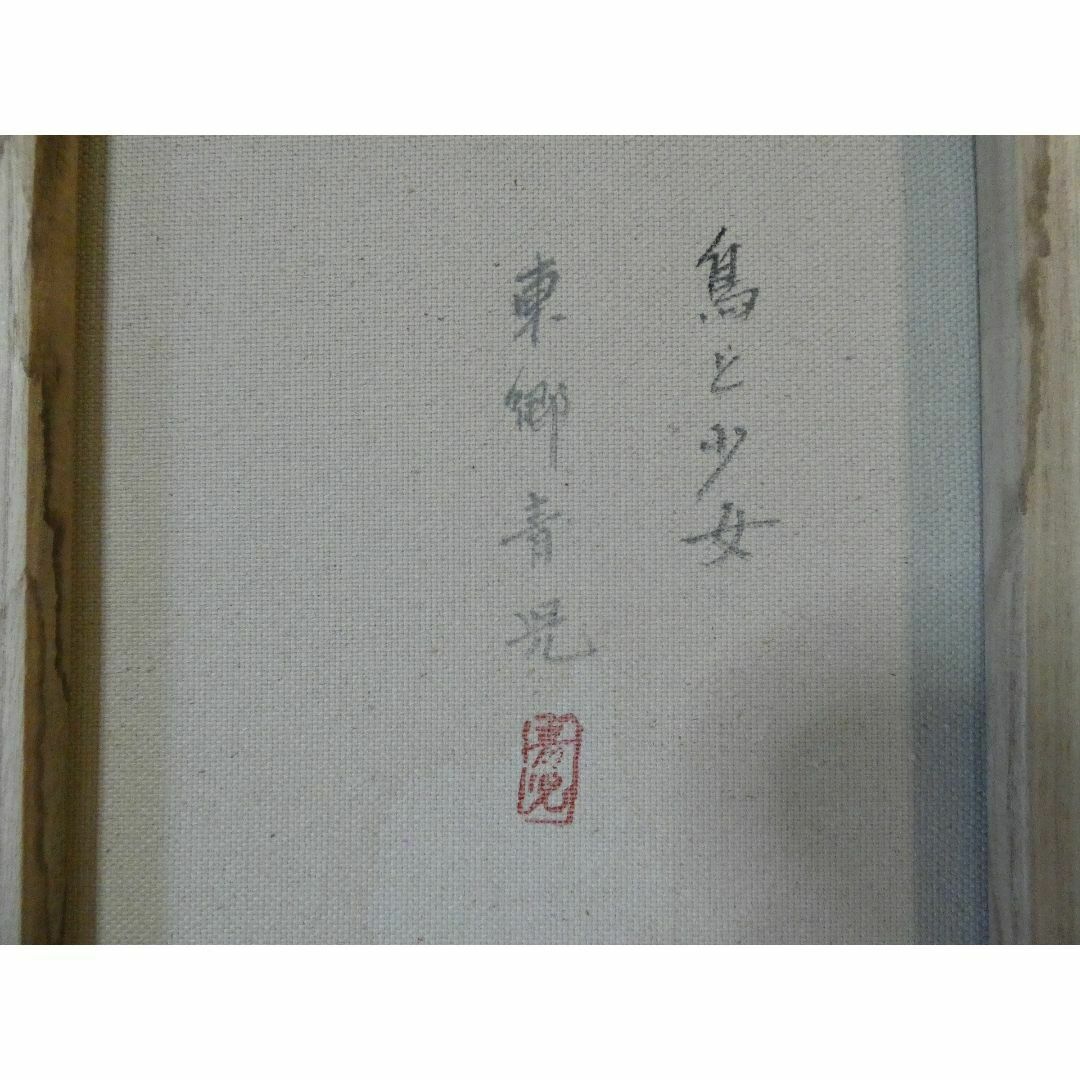 鳥と少女
東郷青児
青児